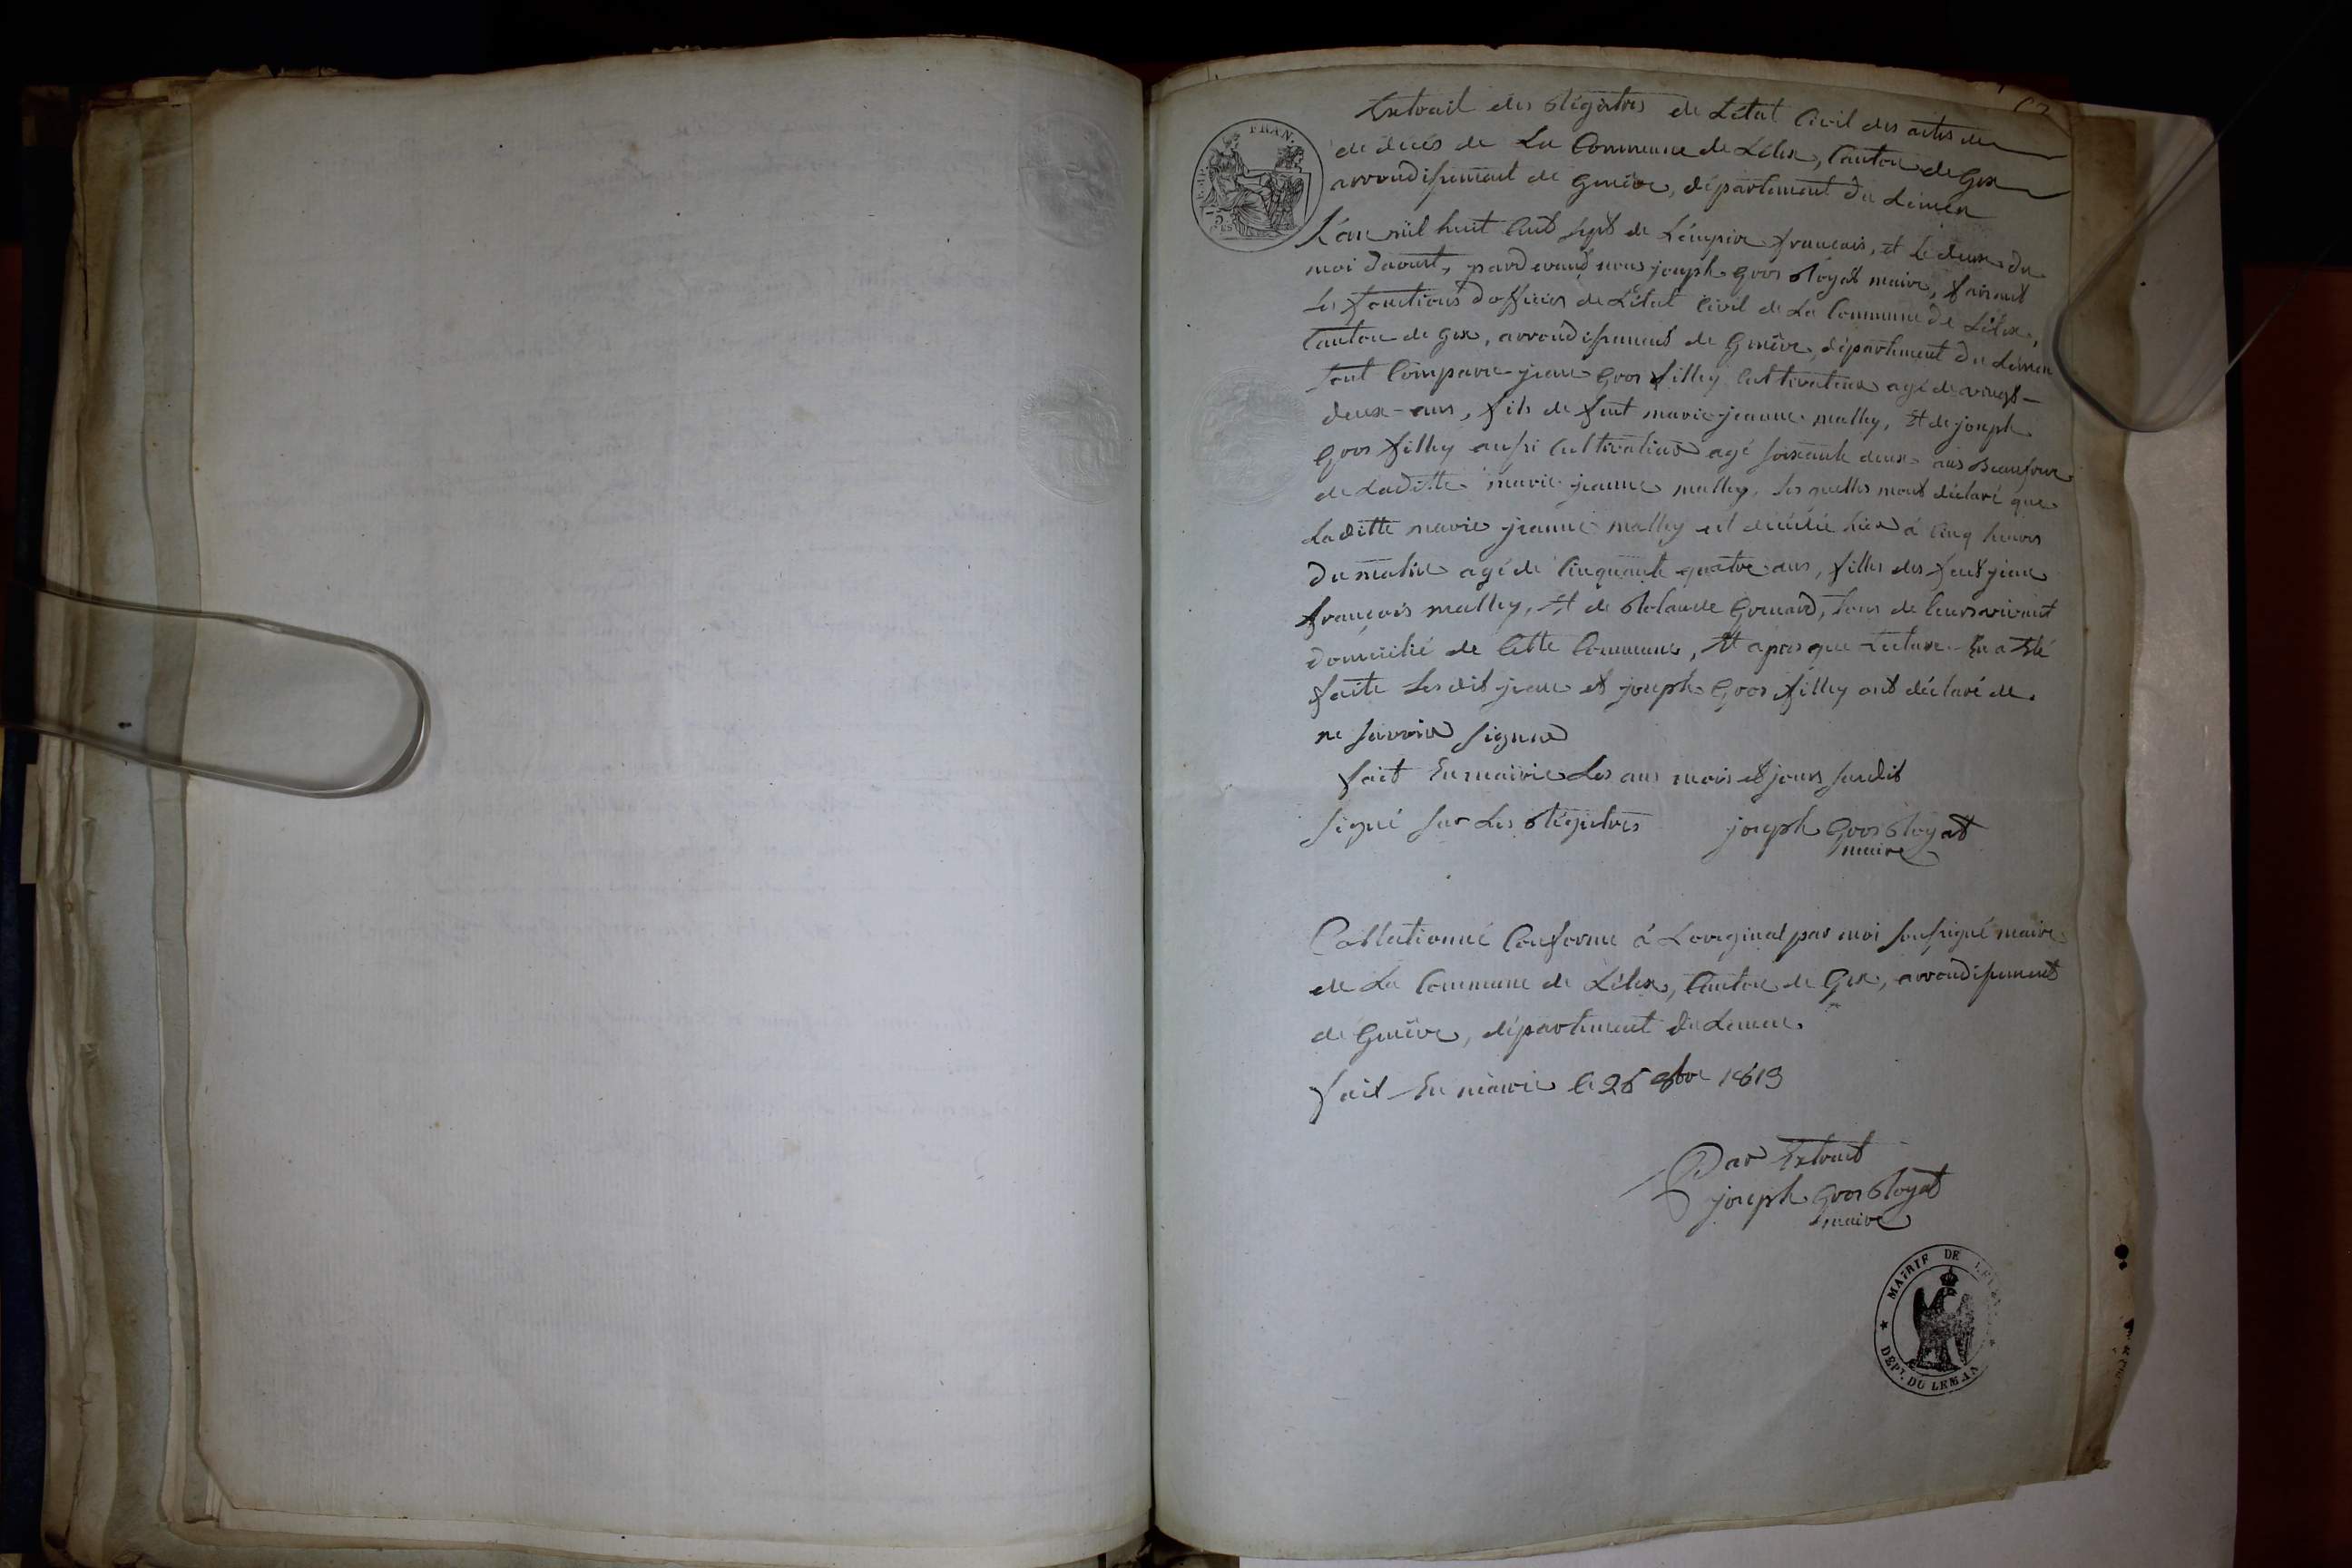 Extrait des Régitres de Létat Civil des actes de
de décés de La Commune de Lélex, Canton de Gex
arrondissement de Genève, département du Léman
L'an mil huit Cent sept de L'émpire francais, et le deux du
moi d'aoust, pardevand nous joseph Gros Royat maire, faisant
les fonctions d'officier de Létat Civil de La Commune de Lélex,
Canton de Gex, arrondissement de Genève, département du Léman
sont Comparu jean Gros filley Cultivateur agé de vingt-
deux-ans, fils de feut marie jeanne malley, Et de joseph
Gros filley aussi Cultivateur agé soixante deux ans
de Laditte marie jeanne malley, les quelles mont déclaré que
Laditte marie jeanne malley est décédée hier à Cinq heures
du matin agé de Cinquante quatre ans, filles des feut jean
françois malley, Et de Rolande Grenard, tous de leurs vivant
domicilié de Cette Commune, Et apres que Lecture En a Eté
faite Lesdit jean et joseph Gros filley ont déclaré de
ne savoir signer
fait En mairie Les ans mois et jours susdit
signé sur Les Régitres joseph Gros Royat
maire
Collationné Conforme à Loreginal par moi soussigné maire
de La Commune de Lélex, Canton de Gex, arrondissement
de Genève, département du Leman
fait En mairie le 26 8bre 1813
Par Extrait
joseph Gros Royat
maire
FRAN.
MAIRIE DE
DEPT. DU LEMAN